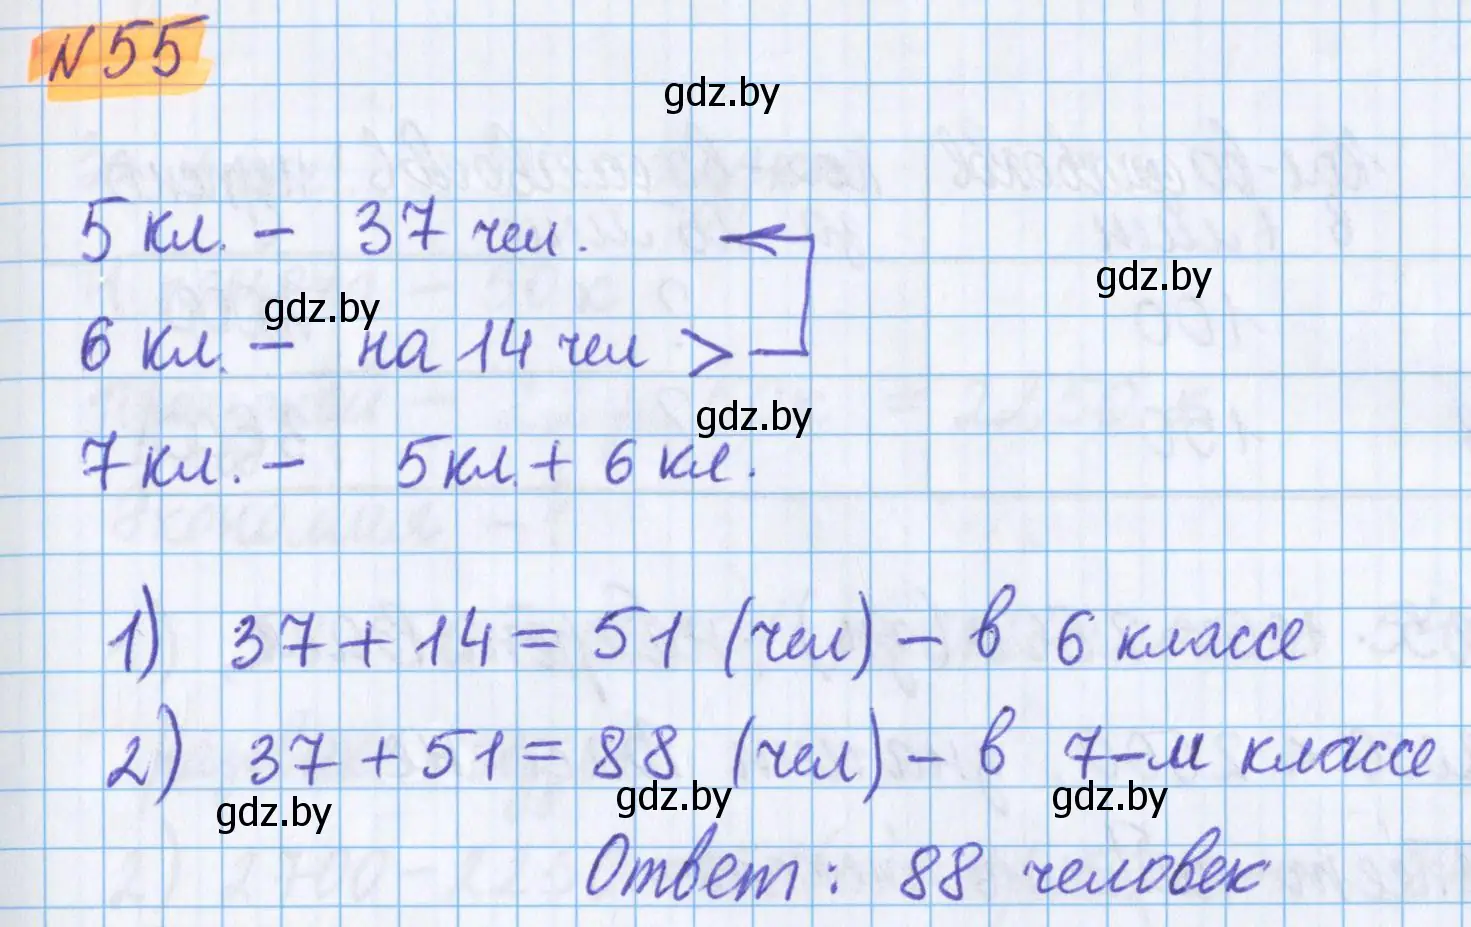 N 55
gdz.by
5 кл. – 37 чел.
gdz.by
gdz.by
6 кл. – на 14 чел >
gdz.by
7 кл. – 5 кл. + 6 кл.
1) 37 + 14 = 51 (чел) – в 6 классе
2) 37 + 51 = 88 (чел) – в 7-м классе
gdz.by gdz.by gdz.by
Ответ: 88 человек